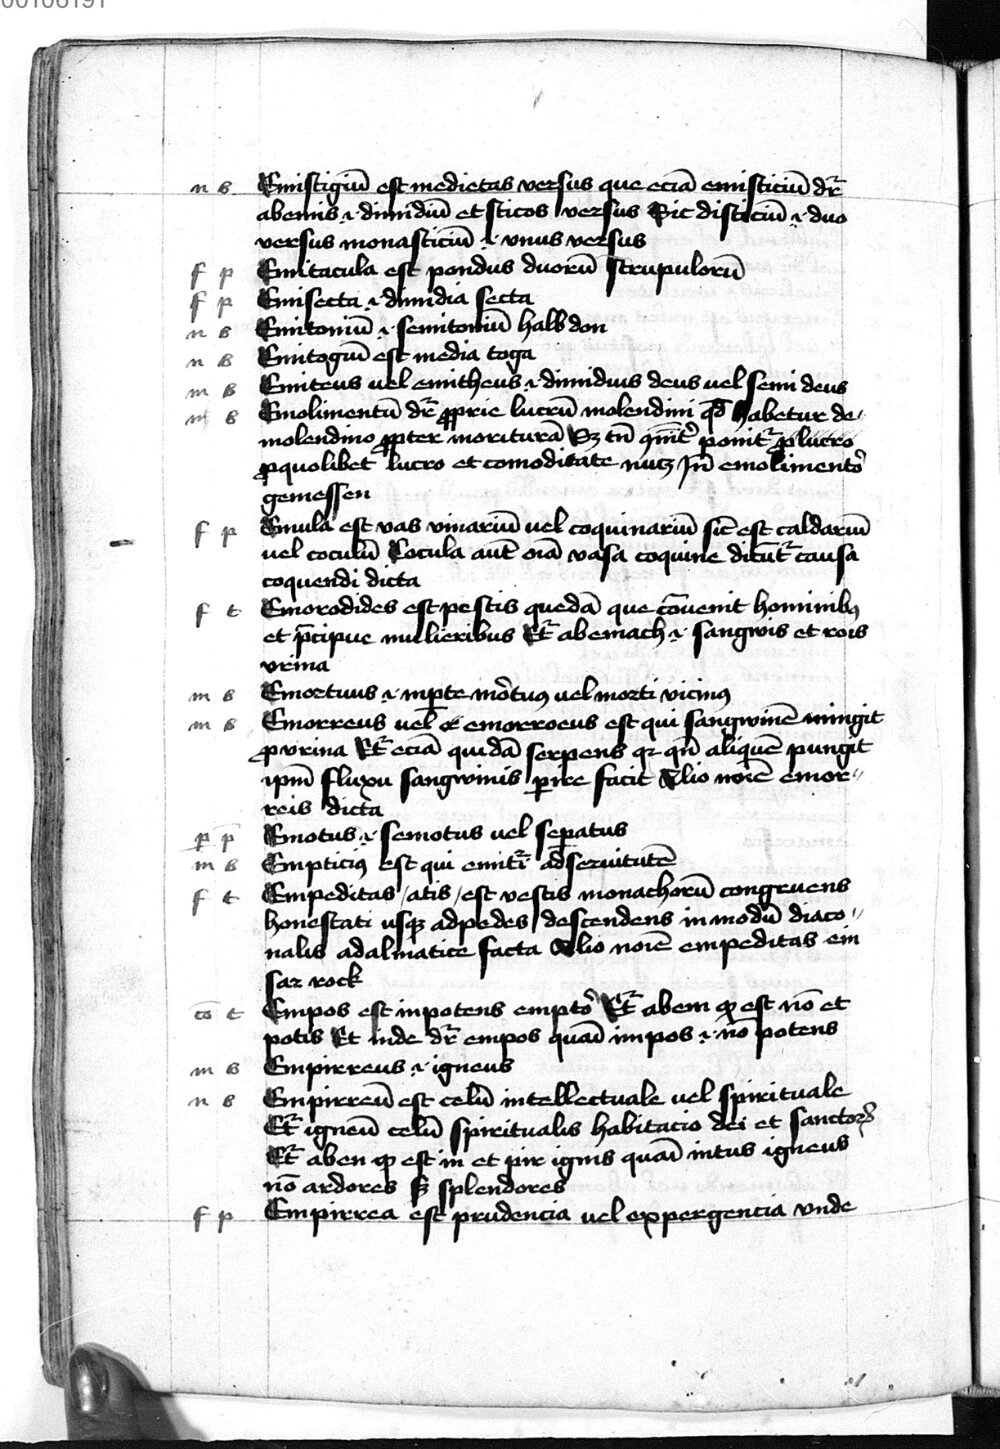 00106191
n s Emistigiū est medietas versus que eciā emisticiū dr̄
abemis .i. dimidiū et sticos versus Sic disticiū .i. duo
versus monasticiū .i. vnus versus
f p Emitacula est pondus duorū scrupulorū
f p Emisecta .i. dimidia secta
n s Emitoniū .i. semitoniū halb don
n s Emitogiū est media toga
m s Emiteus uel emitheus .i. dimidius deus uel semi deus
m s Emolimentū dr̄ ꝓprie lucrū molendini qd̄ habetur de
molendino ꝓpter moriturā Sꝫ tn̄ ponit̄ ꝓ lucro
ꝓ quolibet lucro et comoditate emolimento
gemessen
f p Emula est vas vinariū uel coquinariū sic̄ est caldariū
uel coculū Cocula aūt oīa vasa coquine dicūt̄ causa
coquendi dicta
f t Emorodides est pestis quedā que cōuenit hominibꝫ
et p̄cipue mulieribus Et̄ abemach .i. sangwis et rois
vrina
m s Emortuus .i. mortuꝯ uel morti vicinꝯ
m s Emorreus uel emorroeus est qui sangwinē mingit
ꝓ vrina Et̄ eciā quidā serpens qꝛ qn̄ aliquē pungit
ipm̄ fluxu sangwinis ꝑire facit Alio noīe emor
reis dicta
p p Emotus .i. semotus uel seꝑatus
m s Empticiꝯ est qui emit̄ ad seruitutē
f t Empeditas /atis/ est vestis monachorū congruens
honestati usqꝫ ad pedes descendens in modū diaco
nalis adalmatice facta Alio noīe empeditas ein
sar rock
cō t Empos est inpotens Et̄ abem qd est nō et
potis Et inde dr̄ empos quasi impos .i. nō potens
m s Empirreus .i. igneus
n s Empirreū est celū intellectuale uel spirituale
Et̄ igneū celū spiritualis habitacio dei et sanctoꝝ
Et̄ aben qd est in et pir ignis quasi intus igneus
nō ardores sꝫ splendores
f p Empirrea est prudencia uel expergencia vnde